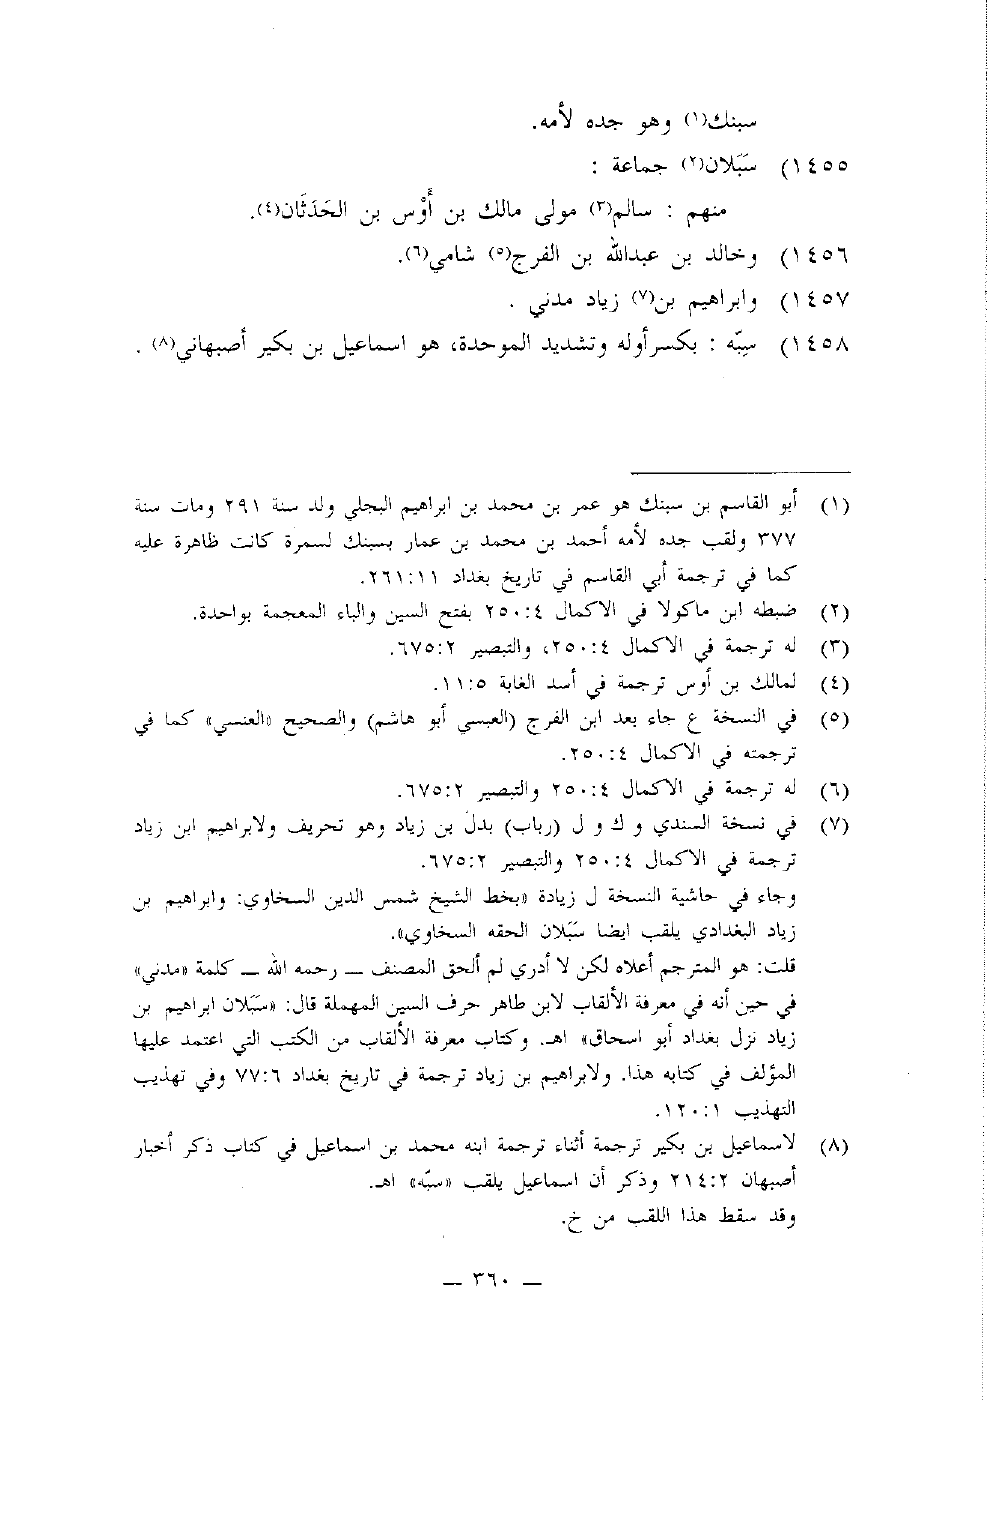 سبنك(١) وهو جده لأمه.
١٤٥٥) سَبَلان(٢) جماعة :
منهم : سالم(٣) مولى مالك بن أَوْس بن الحَدَثَان(٤).
١٤٥٦) وخالد بن عبدالله بن الفرج(٥) شامي(٦).
١٤٥٧) وابراهيم بن(٧) زياد مدني .
١٤٥٨) سِبّه : بكسرأوله وتشديد الموحدة، هو اسماعيل بن بكير أصبهاني(٨) .
(١) أبو القاسم بن سبنك هو عمر بن محمد بن ابراهيم البجلي ولد سنة ٢٩١ ومات سنة
٣٧٧ ولقب جده لأمه أحمد بن محمد بن عمار بسبنك لسمرة كانت ظاهرة عليه
كما في ترجمة أبي القاسم في تاريخ بغداد ٢٦١:١١.
(٢) ضبطه ابن ماكولا في الاكمال ٢٥٠:٤ بفتح السين والباء المعجمة بواحدة.
(٣) له ترجمة في الاكمال ٢٥٠:٤، والتبصير ٦٧٥:٢.
(٤) لمالك بن أوس ترجمة في أسد الغابة ١١:٥.
(٥) في النسخة ع جاء بعد ابن الفرج (العبسي أبو هاشم) والصحيح «العنسي» كما في
ترجمته في الاكمال ٢٥٠:٤.
(٦) له ترجمة في الاكمال ٢٥٠:٤ والتبصير ٦٧٥:٢.
(٧) في نسخة السندي و ك و ل (رباب) بدل بن زياد وهو تحريف ولابراهيم ابن زياد
ترجمة في الاكمال ٢٥٠:٤ والتبصير ٦٧٥:٢.
وجاء في حاشية النسخة ل زيادة «بخط الشيخ شمس الدين السخاوي: وابراهيم بن
زياد البغدادي يلقب ايضا سَبَلان الحقه السخاوي».
قلت: هو المترجم أعلاه لكن لا أدري لم ألحق المصنف ــ رحمه الله ــ كلمة «مدني»
في حين أنه في معرفة الألقاب لابن طاهر حرف السين المهملة قال: «سَبَلان ابراهيم بن
زياد نزل بغداد أبو اسحاق» اهـ. وكتاب معرفة الألقاب من الكتب التي اعتمد عليها
المؤلف في كتابه هذا. ولابراهيم بن زياد ترجمة في تاريخ بغداد ٧٧:٦ وفي تهذيب
التهذيب ١٢٠:١.
(٨) لاسماعيل بن بكير ترجمة أثناء ترجمة ابنه محمد بن اسماعيل في كتاب ذكر أخبار
أصبهان ٢١٤:٢ وذكر أن اسماعيل يلقب «سبّه» اهـ.
وقد سقط هذا اللقب من خ.
ــ ٣٦٠ ــ